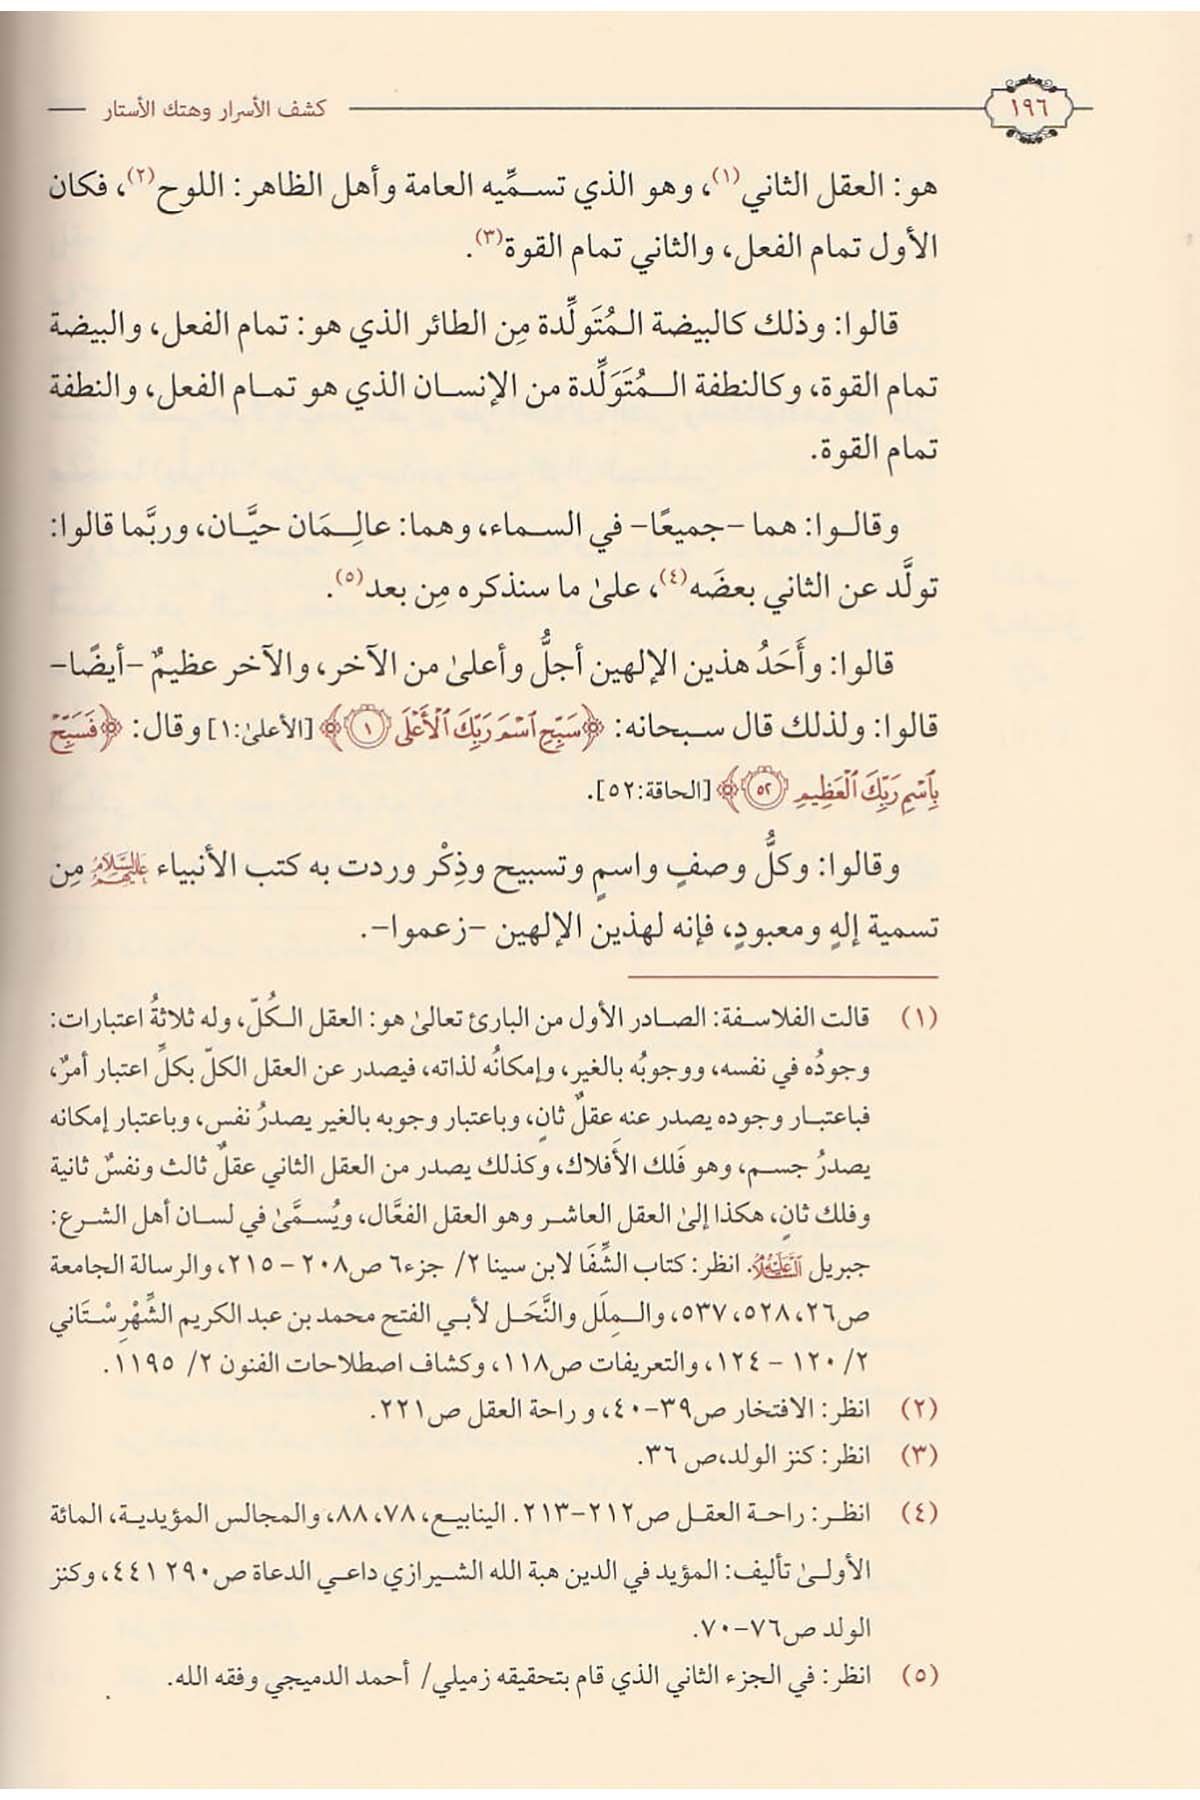 ١٩٦
كشف الأسرار وهتك الأستار
هو: العقل الثاني(١)، وهو الذي تسمِّيه العامة وأهل الظاهر: اللوح(٢)، فكان
الأول تمام الفعل، والثاني تمام القوة(٣).
قالوا: وذلك كالبيضة المُتَولِّدة مِن الطائر الذي هو: تمام الفعل، والبيضة
تمام القوة، وكالنطفة المُتَوَلِّدة من الإنسان الذي هو تمام الفعل، والنطفة
تمام القوة.
وقالوا: هما -جميعًا- في السماء، وهما: عالِمَان حيَّان، وربَّما قالوا:
تولَّد عن الثاني بعضَه(٤)، علىٰ ما سنذكره مِن بعد(٥).
قالوا: وأَحَدُ هذين الإلهين أجلُّ وأعلىٰ من الآخر، والآخر عظيمٌ -أيضًا-
قالوا: ولذلك قال سبحانه: ﴿سَبِّحِ ٱسْمَ رَبِّكَ ٱلْأَعْلَى ١﴾ [الأعلىٰ:١] وقال: ﴿فَسَبِّحْ
بِٱسْمِ رَبِّكَ ٱلْعَظِيمِ ٥٢﴾ [الحاقة:٥٢].
وقالوا: وكلُّ وصفٍ واسمٍ وتسبيح وذِكْر وردت به كتب الأنبياء عليهم السلام مِن
تسمية إلهٍ ومعبودٍ، فإنه لهذين الإلهين -زعموا-.
(١) قالت الفلاسفة: الصادر الأول من البارئ تعالىٰ هو: العقل الكُلّ، وله ثلاثةُ اعتبارات:
وجودُه في نفسه، ووجوبُه بالغير، وإمكانُه لذاته، فيصدر عن العقل الكلّ بكلِّ اعتبار أمرٌ،
فباعتبار وجوده يصدر عنه عقلٌ ثانٍ، وباعتبار وجوبه بالغير يصدرُ نفس، وباعتبار إمكانه
يصدرُ جسم، وهو فَلك الأَفلاك، وكذلك يصدر من العقل الثاني عقلٌ ثالث ونفسٌ ثانية
وفلك ثانٍ، هكذا إلىٰ العقل العاشر وهو العقل الفعَّال، ويُسمَّىٰ في لسان أهل الشرع:
جبريل عليه السلام. انظر: كتاب الشِّفَا لابن سينا ٢/ جزء٦ ص٢٠٨ - ٢١٥، والرسالة الجامعة
ص٢٦، ٥٢٨، ٥٣٧، والمِلَل والنَّحَل لأبي الفتح محمد بن عبد الكريم الشَّهْرِسْتَاني
٢/ ١٢٠ - ١٢٤، والتعريفات ص١١٨، وكشاف اصطلاحات الفنون ٢/ ١١٩٥.
(٢) انظر: الافتخار ص٣٩-٤٠، و راحة العقل ص٢٢١.
(٣) انظر: كنز الولد،ص ٣٦.
(٤) انظر: راحة العقل ص٢١٢-٢١٣. الينابيع، ٧٨، ٨٨، والمجالس المؤيدية، المائة
الأولىٰ تأليف: المؤيد في الدين هبة الله الشيرازي داعي الدعاة ص٢٩٠ ٤٤١، وكنز
الولد ص٧٦-٧٠.
(٥) انظر: في الجزء الثاني الذي قام بتحقيقه زميلي/ أحمد الدميجي وفقه الله.